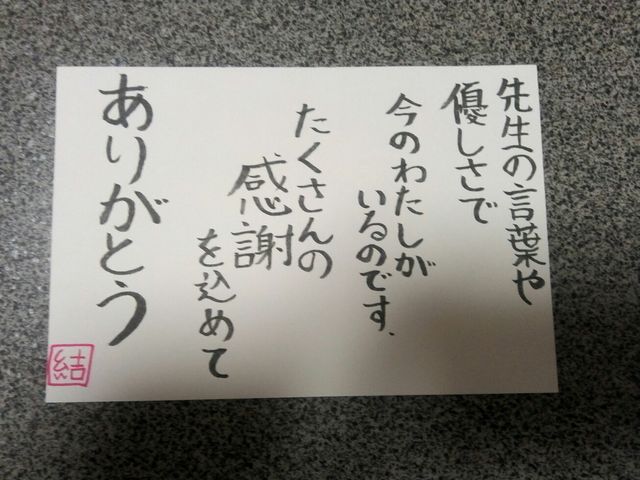 先生の言葉や
優しさで
今のわたしが
いるのです、
たくさんの
感謝
を込めて
ありがとう
結